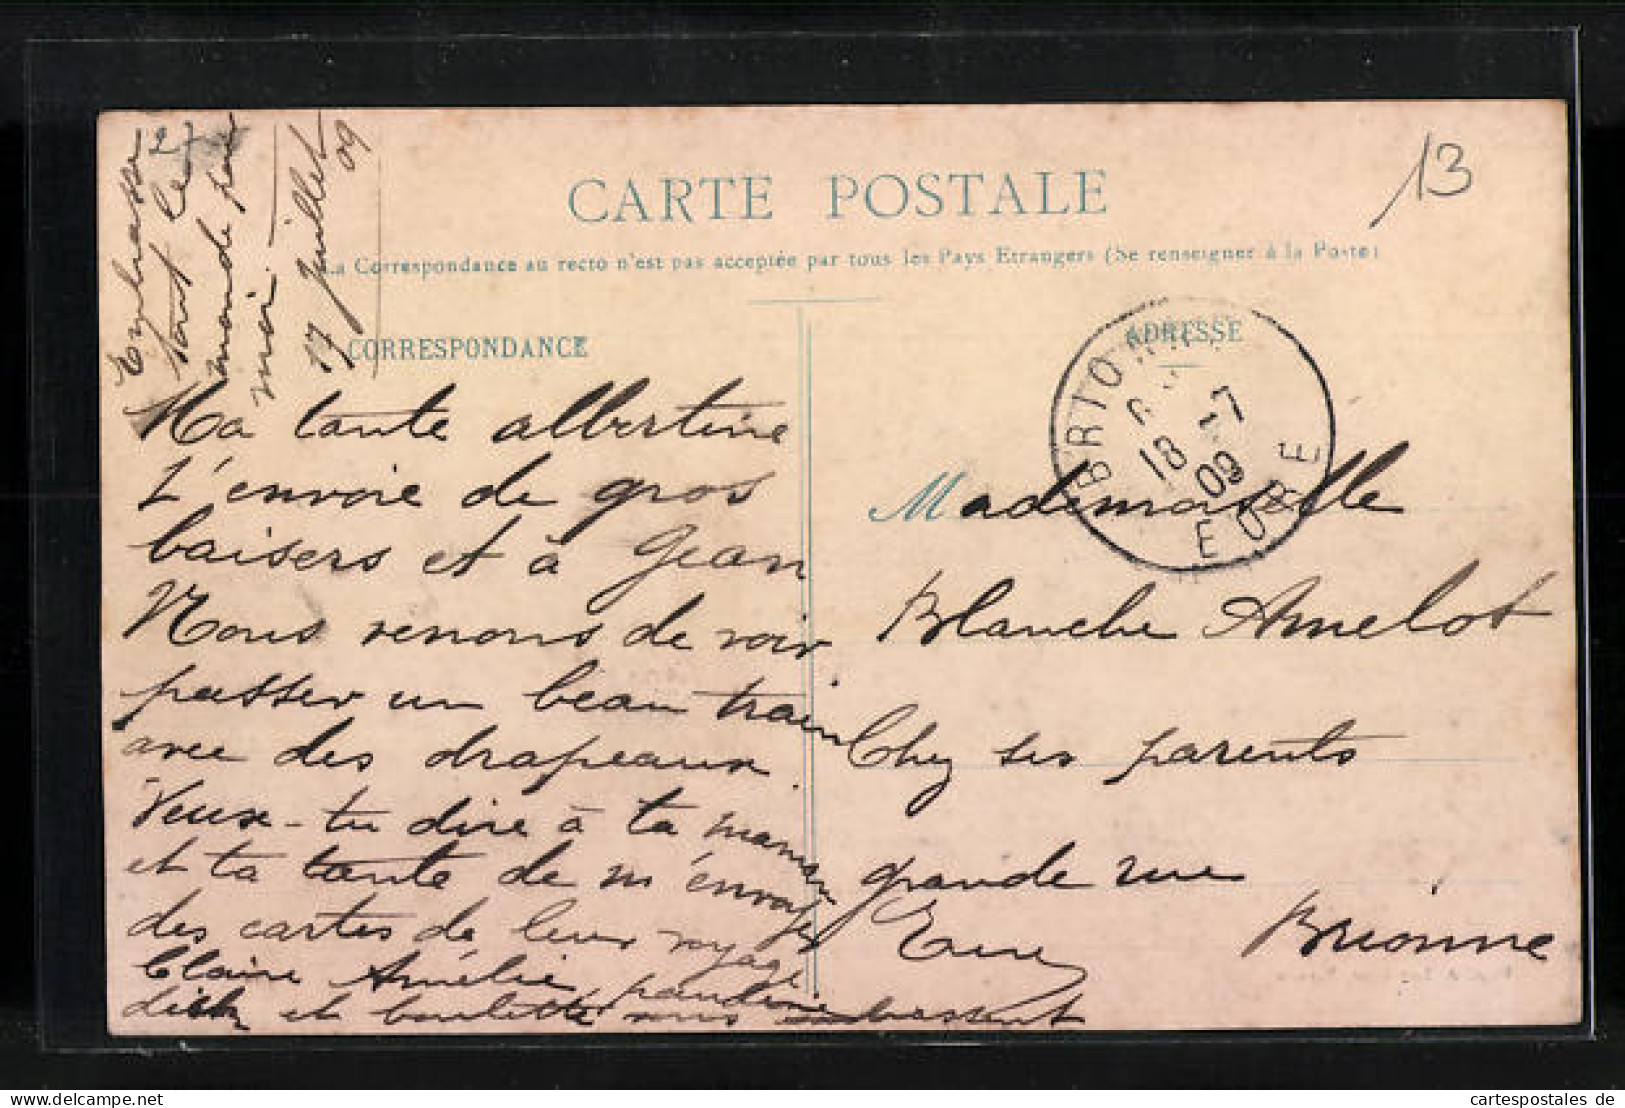 27
Embrasse
tout le
monde pour
moi.
17 Juillet
09
13
CARTE POSTALE
La Correspondance au recto n'est pas acceptée par tous les Pays Etrangers (Se renseigner à la Poste)
CORRESPONDANCE
Ma tante albertine
t'envoie de gros
baisers et à Jean
Nous venons de voir
passer un beau train
avec des drapeaux.
Veux-tu dire à ta maman
et ta tante de m'envoyer
des cartes de leur voyage
Claire Amélie
et boulette vous embrassent
ADRESSE
BRIONNE
18 -7
09
EURE
Mademoiselle
Blanche Amelot
Chez ses parents
grande rue
Brionne
Eure
cartespostales de
delcampe.net